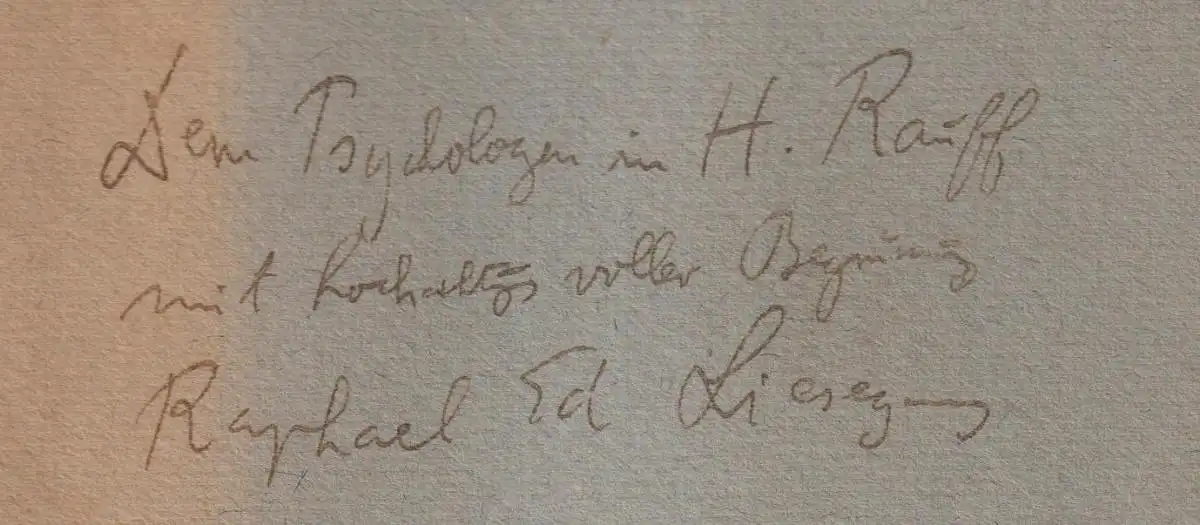 Dem Psychologen in H. Rauff
mit hochachtungsvoller Begrüssung
Raphael Ed Liesegang